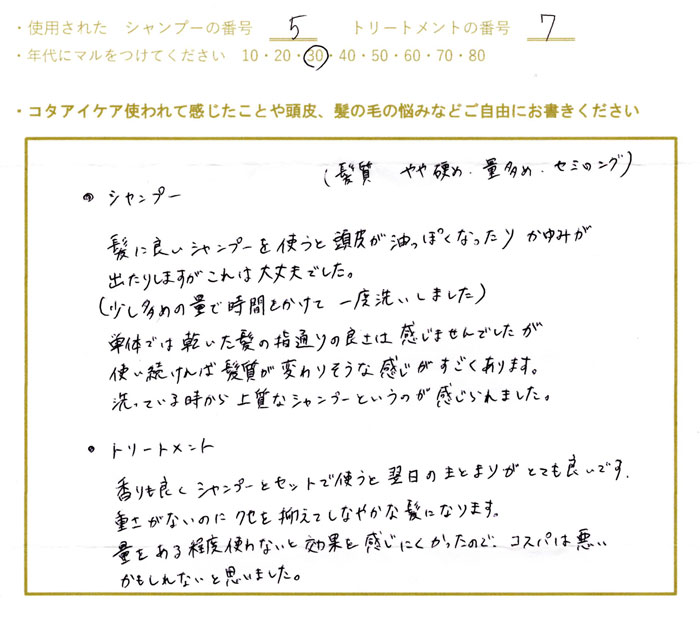 ・使用された シャンプーの番号 5 トリートメントの番号 7
・年代にマルをつけてください 10・20・30・40・50・60・70・80
・コタアイケア使われて感じたことや頭皮、髪の毛の悩みなどご自由にお書きください
(髪質 やや硬め・量多め・セミロング)
・シャンプー
髪に良いシャンプーを使うと頭皮が油っぽくなったりかゆみが
出たりしますがこれは大丈夫でした。
(少し多めの量で時間をかけて一度洗いしました)
単体では乾いた髪の指通りの良さは感じませんでしたが
使い続ければ髪質が変わりそうな感じがすごくあります。
洗っている時から上質なシャンプーというのが感じられました。
・トリートメント
香りも良くシャンプーとセットで使うと翌日のまとまりがとても良いです.
重さがないのにクセを抑えてしなやかな髪になります。
量をある程度使わないと効果を感じにくかったので、コスパは悪い
かもしれないと思いました。